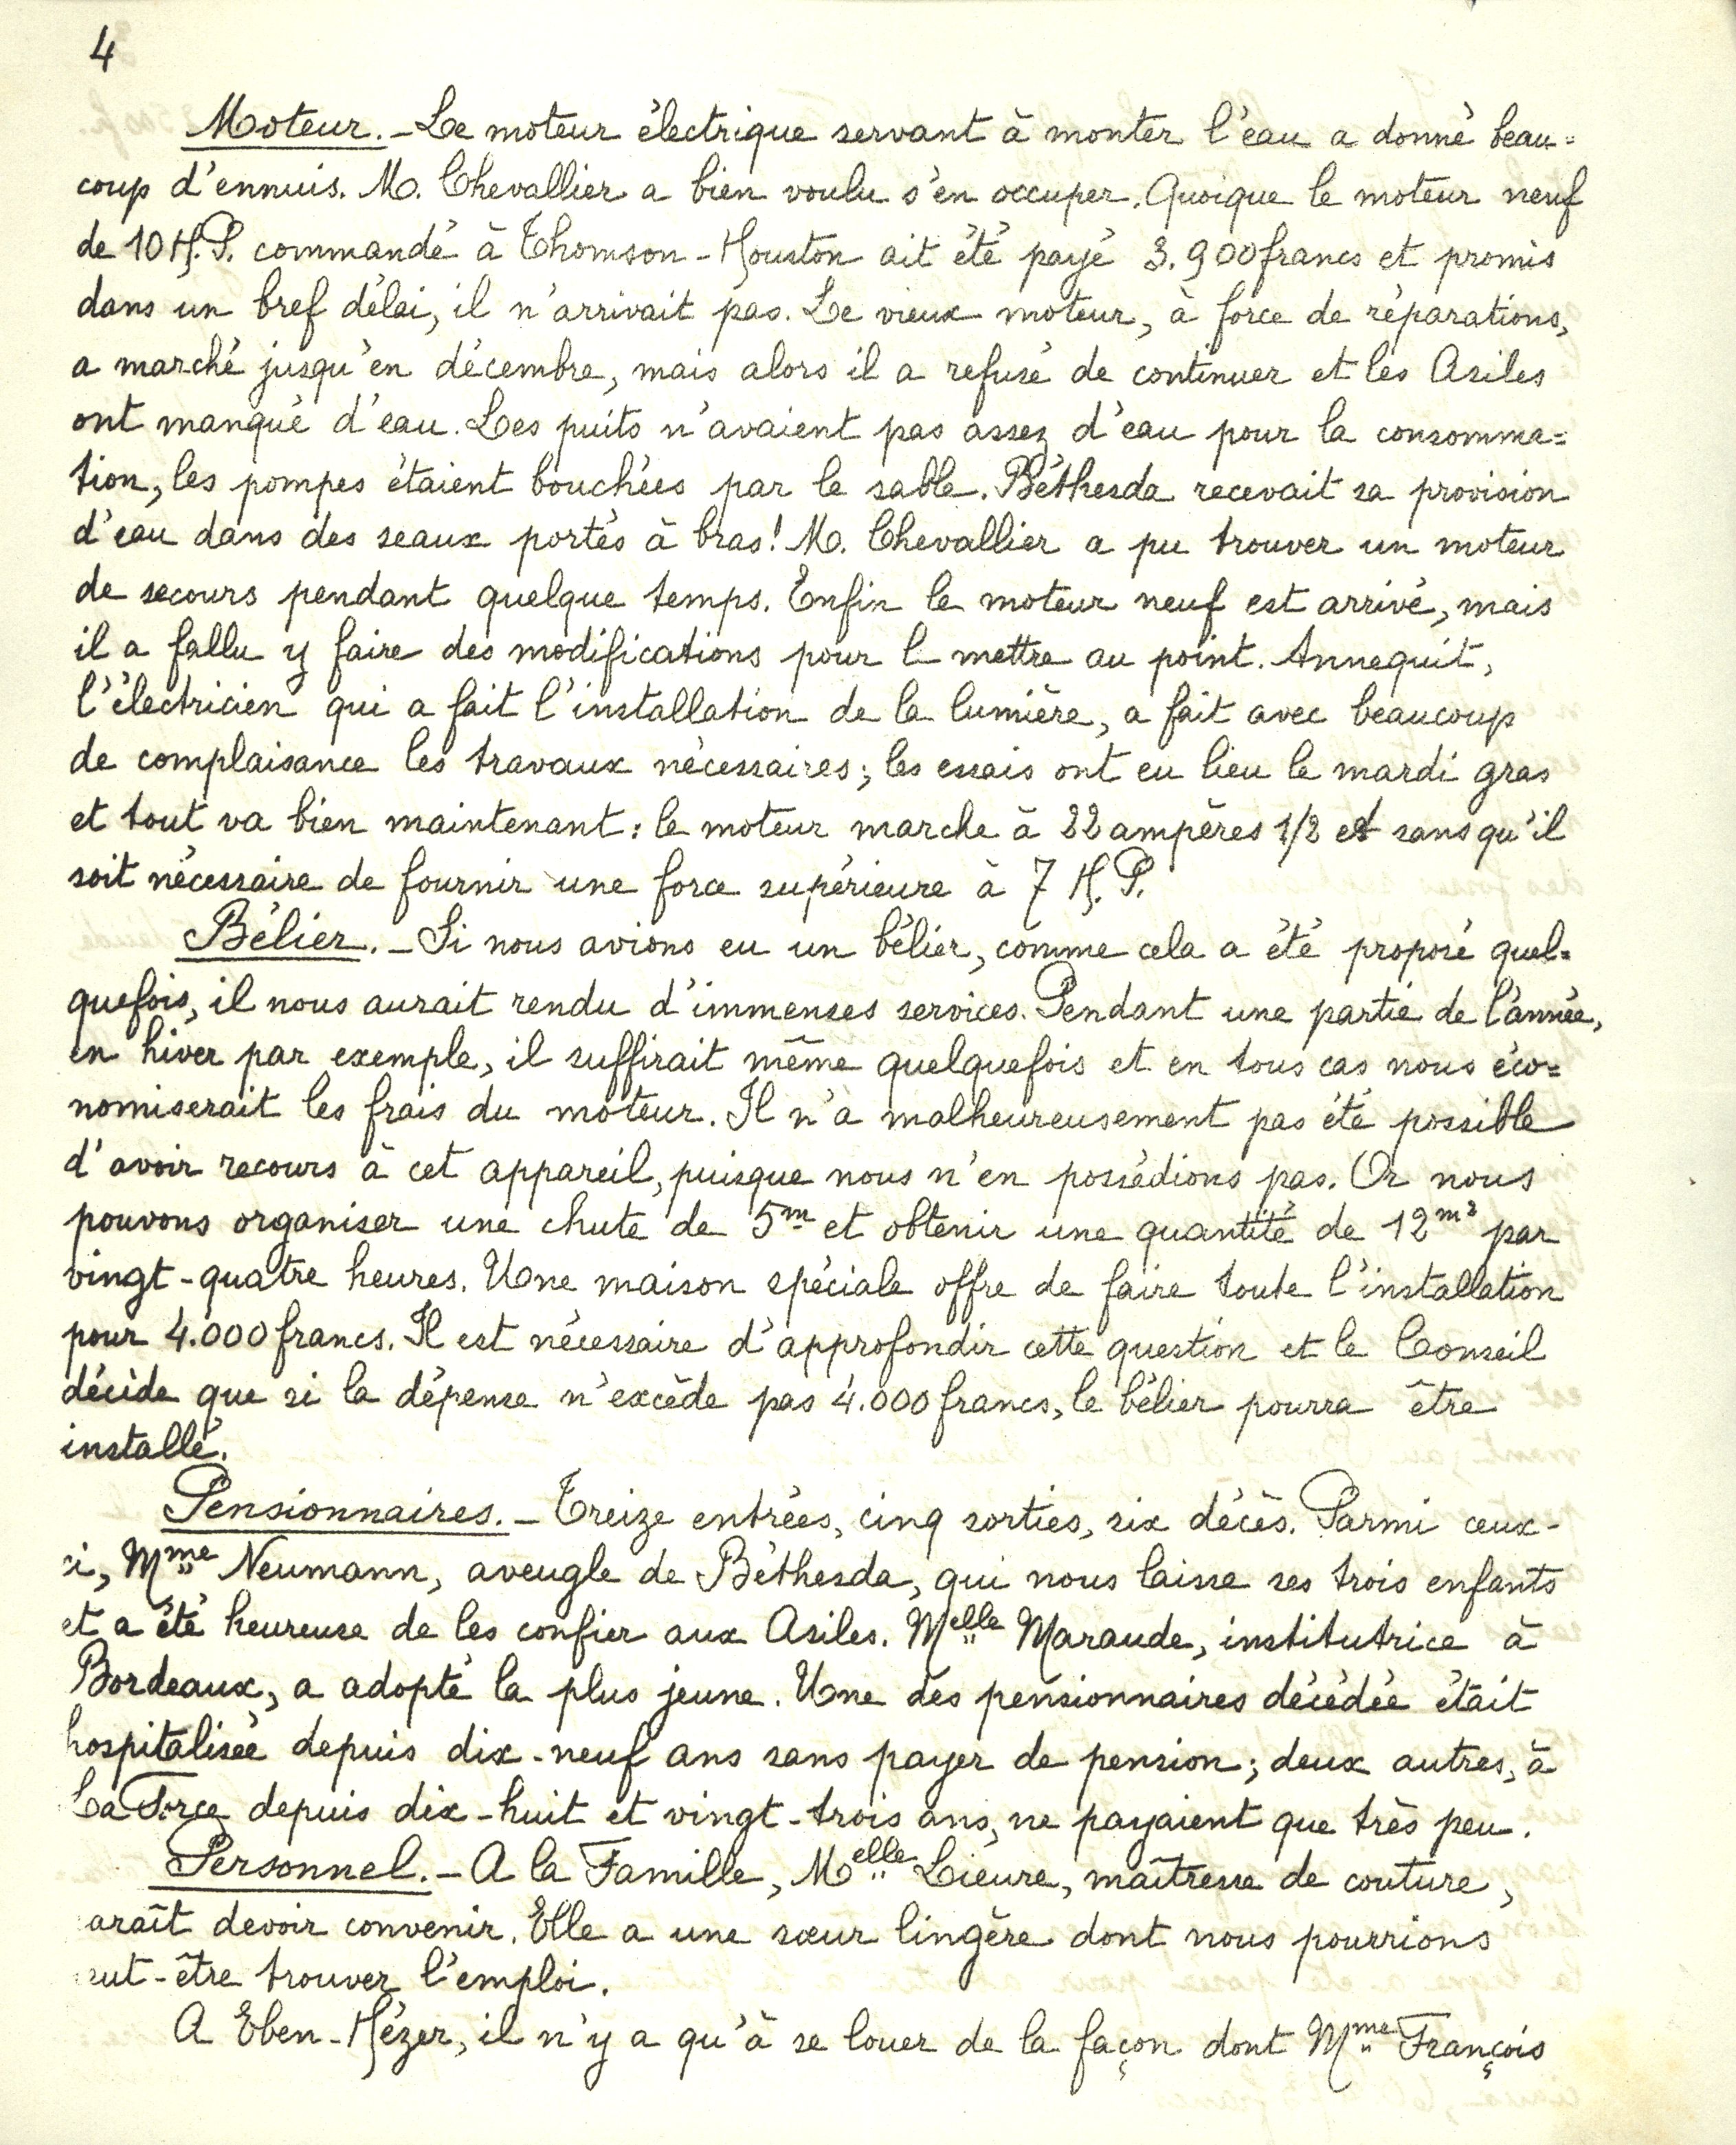 4
Moteur. - Le moteur électrique servant à monter l'eau a donné beau=
coup d'ennuis. M. Chevallier a bien voulu s'en occuper. Quoique le moteur neuf
de 10 H.P. commandé à Thomson-Houston ait été payé 3.900 francs et promis
dans un bref délai, il n'arrivait pas. Le vieux moteur, à force de réparations,
a marché jusqu'en décembre, mais alors il a refusé de continuer et les Asiles
ont manqué d'eau. Les puits n'avaient pas assez d'eau pour la consomma=
tion, les pompes étaient bouchées par le sable. Béthesda recevait sa provision
d'eau dans des seaux portés à bras! M. Chevallier a pu trouver un moteur
de secours pendant quelque temps. Enfin le moteur neuf est arrivé, mais
il a fallu y faire des modifications pour le mettre au point. Annequit,
l'électricien qui a fait l'installation de la lumière, a fait avec beaucoup
de complaisance les travaux nécessaires; les essais ont eu lieu le mardi gras
et tout va bien maintenant: le moteur marche à 22 ampères 1/2 et sans qu'il
soit nécessaire de fournir une force supérieure à 7 H.P.
Bélier. - Si nous avions eu un bélier, comme cela a été proposé quel=
quefois, il nous aurait rendu d'immenses services. Pendant une partie de l'année,
en hiver par exemple, il suffirait même quelquefois et en tous cas nous éco=
nomiserait les frais du moteur. Il n'a malheureusement pas été possible
d'avoir recours à cet appareil, puisque nous n'en possédions pas. Or nous
pouvons organiser une chute de 5m et obtenir une quantité de 12m³ par
vingt-quatre heures. Une maison spéciale offre de faire toute l'installation
pour 4.000 francs. Il est nécessaire d'approfondir cette question et le Conseil
décide que si la dépense n'excède pas 4.000 francs, le bélier pourra être
installé.
Pensionnaires. - Treize entrées, cinq sorties, six décès. Parmi ceux-
ci, Mme Neumann, aveugle de Béthesda, qui nous laisse ses trois enfants
et a été heureuse de les confier aux Asiles. Melle Maraude, institutrice à
Bordeaux, a adopté la plus jeune. Une des pensionnaires décédée était
hospitalisée depuis dix-neuf ans sans payer de pension; deux autres, à
La Force depuis dix-huit et vingt-trois ans, ne payaient que très peu.
Personnel. - A la Famille, Melle Lieure, maîtresse de couture,
araît devoir convenir. Elle a une sœur lingère dont nous pourrions
eut-être trouver l'emploi.
A Eben-Hézer, il n'y a qu'à se louer de la façon dont Mme François